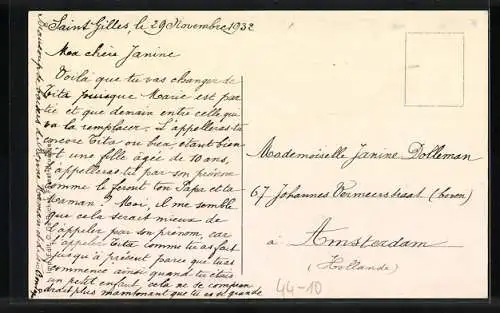 Saint Gilles, le 29 Novembre 1932
Ma chère Janine
Voilà que tu vas changer de
Tita puisque Marie est par
tie et que demain entre celle qui
va la remplacer. L'appelleras-tu
encore Tita ou bien, étant bien
une fille âgée de 10 ans,
appelleras-tu par son prénom
comme le feront ton Papa et ta
Maman? Moi, il me semble
que cela serait mieux de
l'appeler par son prénom, car
l'appeler Tita comme tu as fait
jusqu'à présent parce que tu as
commencé ainsi quand tu étais
un petit enfant, cela ne se compren
drait plus maintenant que tu es si grande
Mademoiselle Janine Dolleman
67 Johannes Vermeerstraat (boven)
à Amsterdam
(Hollande)
44-10